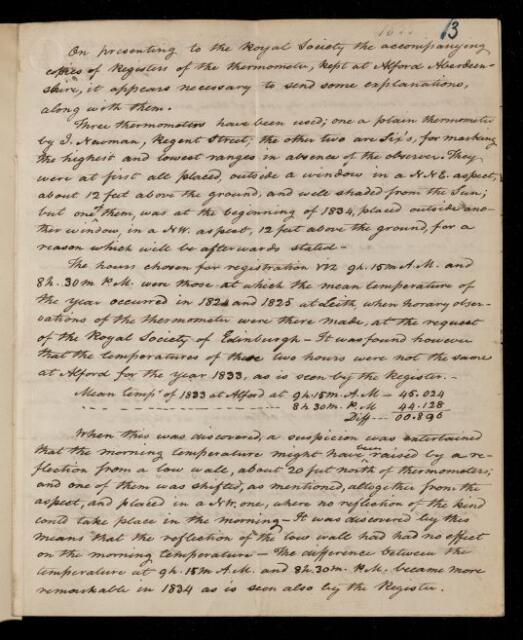 13
On presenting to the Royal Society the accompanying
copies of Registers of the thermometer, kept at Alford Aberdeen-
shire, it appears necessary to send some explanations,
along with them.
Three thermometers have been used; one a plain thermometer
by J. Newman, Regent Street; the other two are Six's, for marking
the highest and lowest ranges in absence of the observer. They
were at first all placed, outside a window in a N.N.E. aspect,
about 12 feet above the ground, and well shaded from the Sun;
but one of them, was at the beginning of 1834, placed outside ano-
ther window, in a N.W. aspect, 12 feet above the ground, for a
reason which will be afterwards stated -
The hours chosen for registration viz 9h. 15m A.M. and
8h. 30m P.M. were those at which the mean temperature of
the year occurred in 1824 and 1825 at Leith, when horary obser-
vations of the thermometer were there made, at the request
of the Royal Society of Edinburgh - It was found however
that the temperatures of these two hours were not the same
at Alford for the year 1833, as is seen by the Register. -
Mean temp.r of 1833 at Alford at 9h. 15m. A.M - 45.024
8h. 30m. P.M 44.128
Diff - 00.896
When this was discovered, a suspicion was entertained
that the morning temperature might have been raised by a re-
flection from a low wall, about 20 feet north of thermometers;
and one of them was shifted, as mentioned, altogether from the
aspect, and placed in a N.W. one, where no reflection of the kind
could take place in the morning - It was discovered by this
means that the reflection of the low wall had had no effect
on the morning temperature - The difference between the
temperature at 9h. 15m A.M. and 8h. 30m. P.M. became more
remarkable in 1834 as is seen also by the Register.